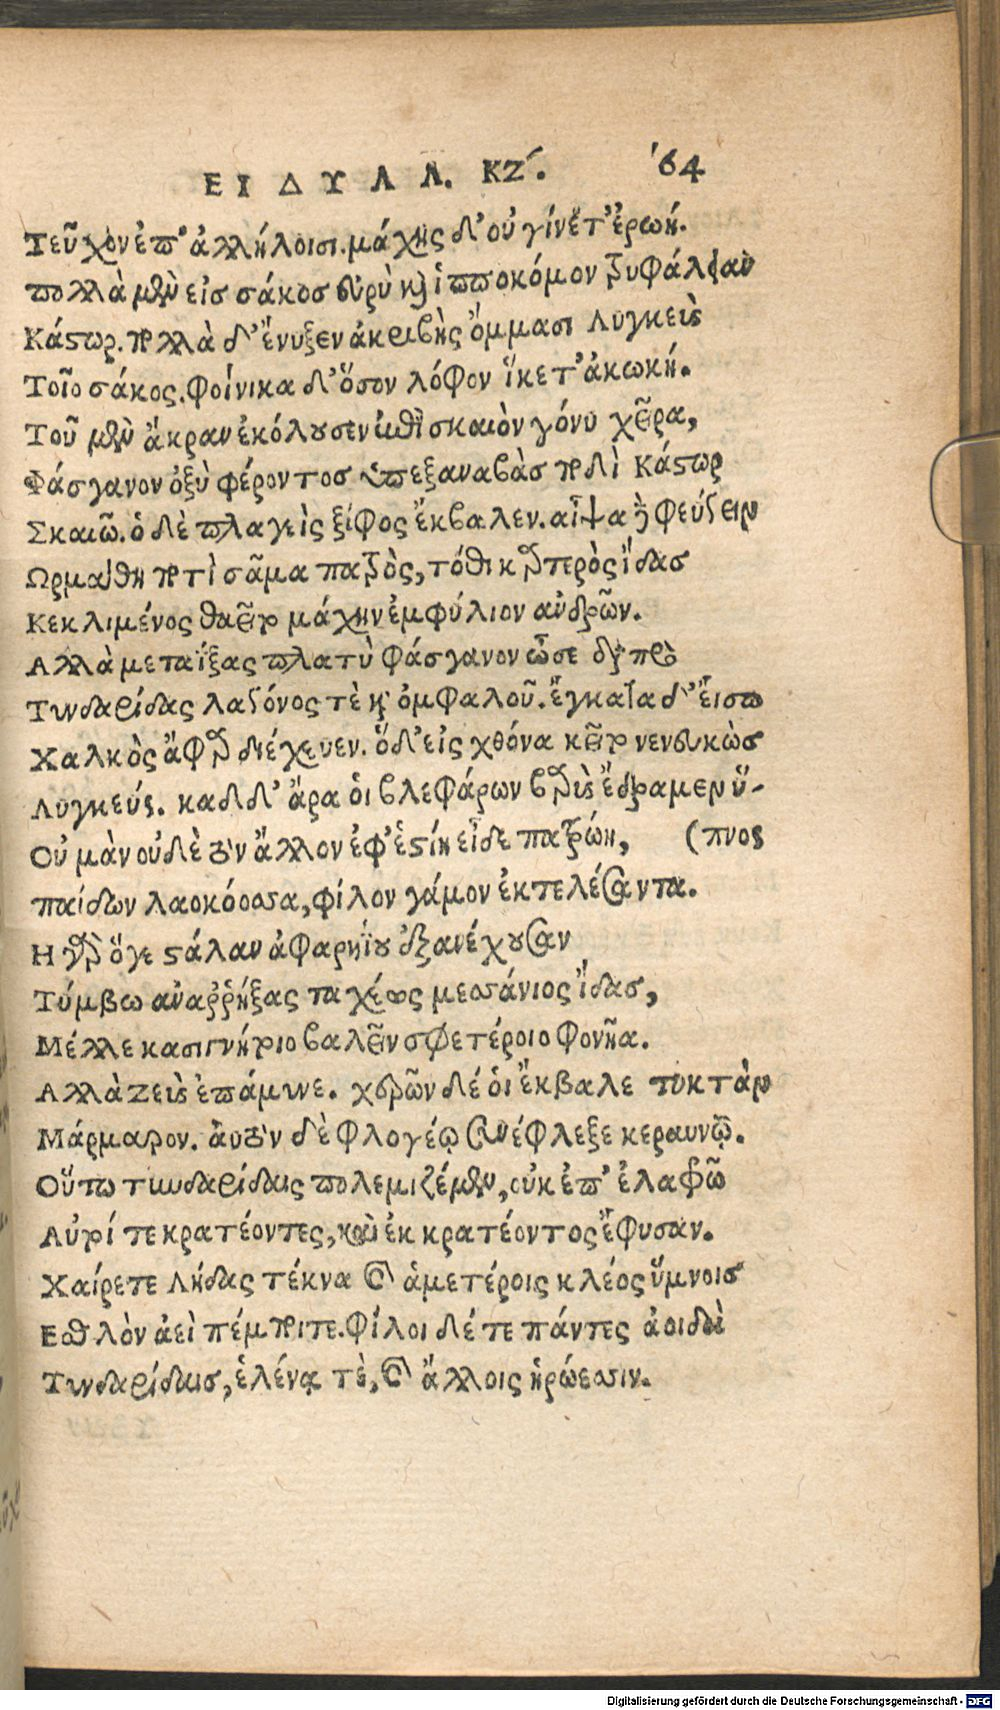 ΕΙΔΥΛΛ. ΚΖ´. 64
Τεῦχον ἐπ' ἀλλήλοισι. μάχης δ' οὐ γίνετ' ἐρωή.
πολλὰ μὲν εἰς σάκος εὐρὺ καὶ ἱπποκόμον τρυφάλειαν
Κάστωρ. πολλὰ δ' ἔνυξεν ἀκριβὴς ὄμμασι Λυγκεὺς
Τοῖο σάκος. φοίνικα δ' ὅσον λόφον ἵκετ' ἀκωκή.
Τοῦ μὲν ἄκραν ἐκόλουσεν ἐπὶ σκαιὸν γόνυ χεῖρα,
Φάσγανον ὀξὺ φέροντος ὑπεξαναβὰς ποδὶ Κάστωρ
Σκαιῶ. ὁ δὲ πλαγεὶς ξίφος ἔκβαλεν. αἶψα δὲ φεύγειν
Ωρμαήθη ποτὶ σᾶμα πατρὸς, τόθι κρατερὸς ἴδας
Κεκλιμένος θαεῖτο μάχην ἐμφύλιον ἀνδρῶν.
Αλλὰ μεταΐξας πλατὺ φάσγανον ὦσε διαπρὸ
Τυνδαρίδας λαγόνος τὲ καὶ ὀμφαλοῦ. ἔγκατα δ' εἴσω
Χαλκὸς ἄφαρ διέχευεν. ὅδ' εἰς χθόνα κεῖτο νενευκὼς
Λυγκεύς. καδδ' ἄρα οἱ βλεφάρων βαρὺς ἔδραμεν ὕ-
Οὐ μὰν οὐδὲ τὸν ἄλλον ἐφ' ἑστίη εἶδε πατρώη, (πνος
παίδων λαοκόοσσα, φίλον γάμον ἐκτελέσαντα.
Η γὰρ ὅγε στάλαν ἀφαρηΐου ἐξανέχουσαν
Τύμβω ἀναῤῥήξας ταχέως μεσσάνιος ἴδας,
Μέλλε κασιγνήτοιο βαλεῖν σφετέροιο φονῆα.
Αλλὰ Ζεὺς ἐπάμυνε. χερῶν δέ οἱ ἔκβαλε τυκτὰν
Μάρμαρον. ἀυτὸν δὲ φλογέῳ συνέφλεξε κεραυνῷ.
Οὕτω τυνδαρίδαις πολεμιζέμεν, οὐκ ἐπ' ἐλαφρῶ
Αὐτοί τε κρατέοντες, καὶ ἐκ κρατέοντος ἔφυσαν.
Χαίρετε Λήδας τέκνα καὶ ἁμετέροις κλέος ὕμνοις
Εσθλὸν ἀεὶ πέμποιτε. Φίλοι δέ τε πάντες ἀοιδοὶ
Τυνδαρίδαις, ἑλένᾳ τὲ, καὶ ἄλλοις ἡρώεσσιν.
Digitalisierung gefördert durch die Deutsche Forschungsgemeinschaft - DFG